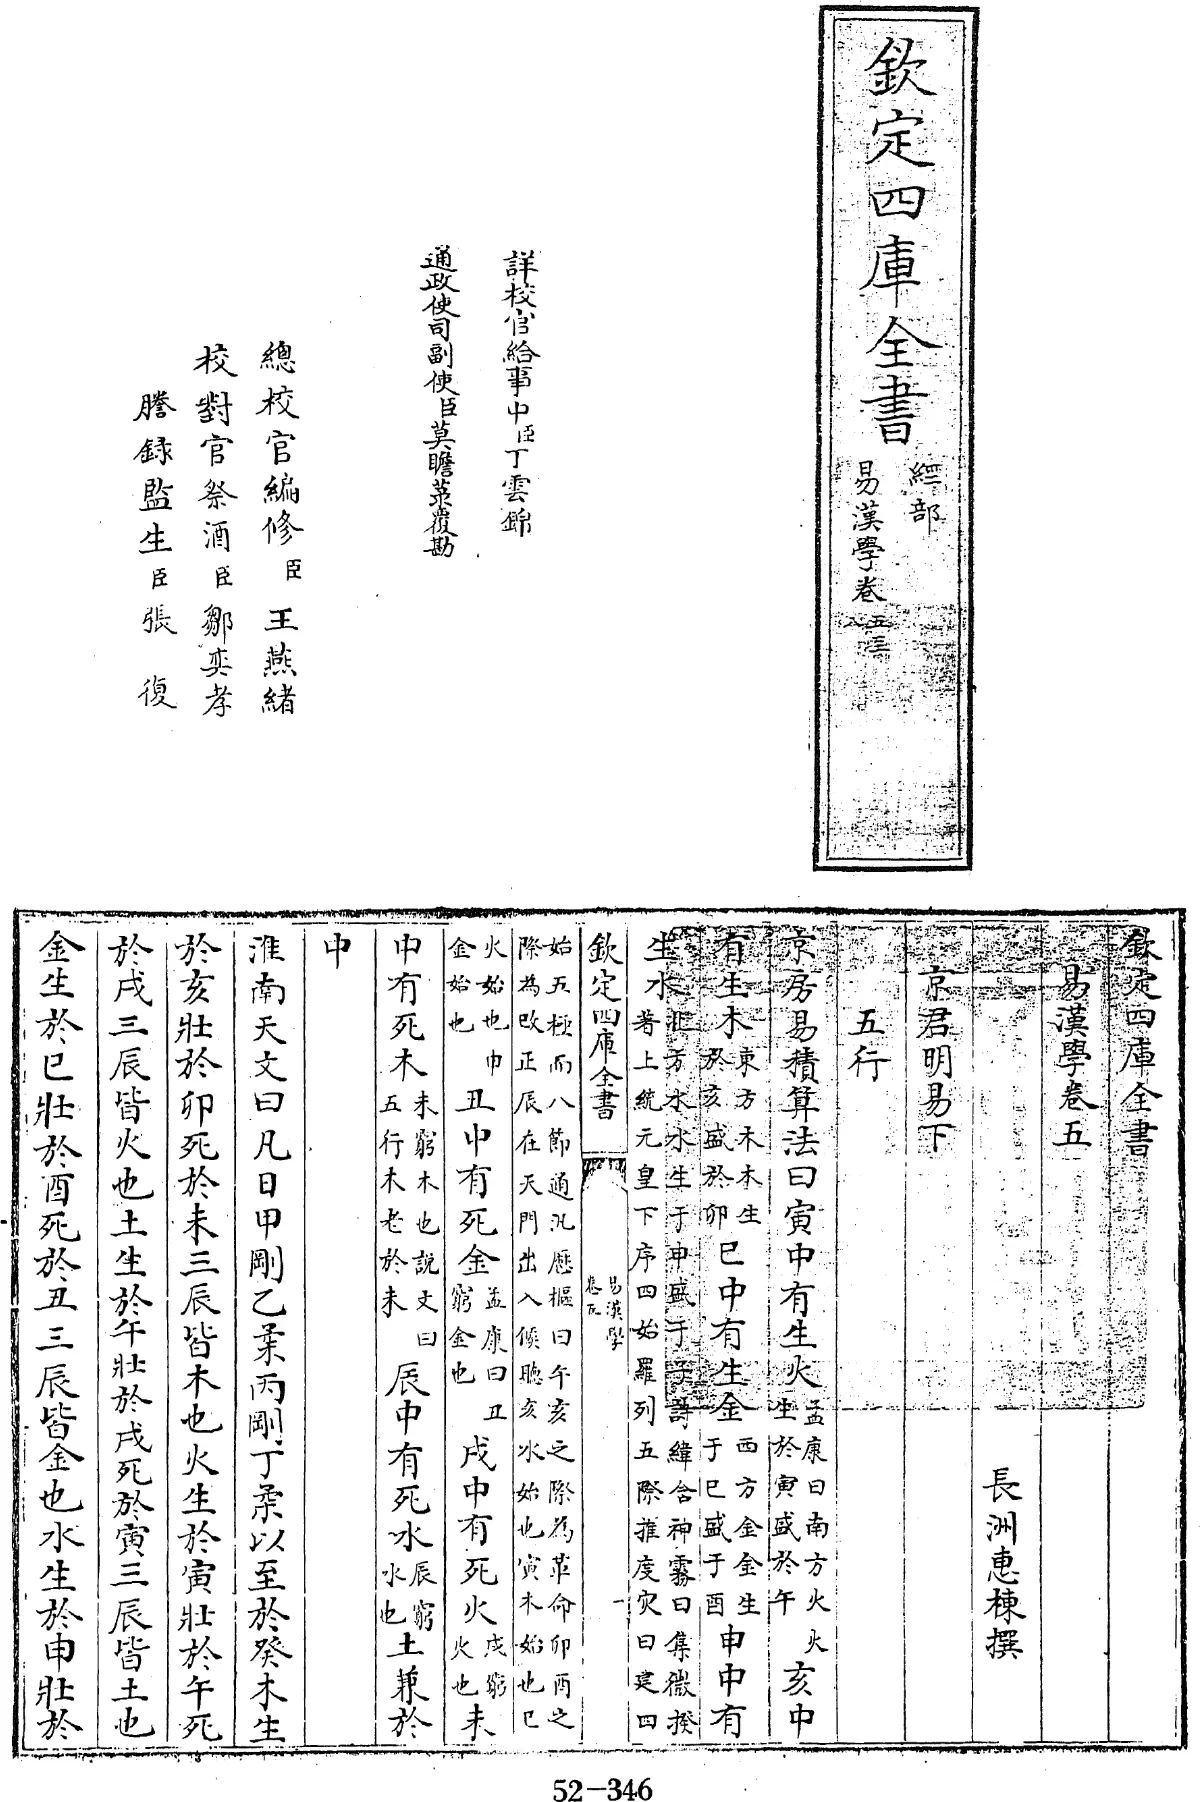 欽定四庫全書
經部
易漢學卷五至八
詳校官給事中臣丁雲錦
通政使司副使臣莫瞻菉覆勘
總校官編修臣王燕緒
校對官祭酒臣鄒奕孝
謄錄監生臣張復
欽定四庫全書
易漢學卷五
長洲惠棟撰
京君明易下
五行
京房易積算法曰寅中有生火孟康曰南方火火生於寅盛於午亥中
有生木東方木木生於亥盛於卯巳中有生金西方金金生于巳盛于酉申中有
生水北方水水生于申盛于子詩緯含神霧曰集微揆著上統元皇下序四始羅列五際推度灾曰建四
欽定四庫全書
易漢學
卷五
一
始五極而八節通汎歷樞曰午亥之際為革命卯酉之際為改正辰在天門出入候聽亥水始也寅木始也巳
火始也申金始也丑中有死金孟康曰丑窮金也戌中有死火戌窮火也未
中有死木未窮木也說文曰五行木老於未辰中有死水辰窮水也土兼於
中
淮南天文曰凡日甲剛乙柔丙剛丁柔以至於癸木生
於亥壯於卯死於未三辰皆木也火生於寅壯於午死
於戌三辰皆火也土生於午壯於戌死於寅三辰皆土也
金生於巳壯於酉死於丑三辰皆金也水生於申壯於
52-346